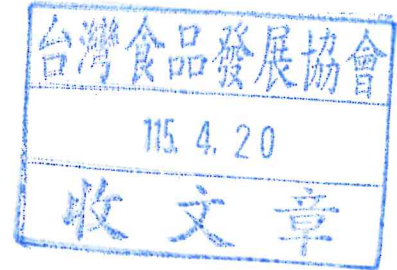 台灣食品發展協會
115. 4. 20
收文章